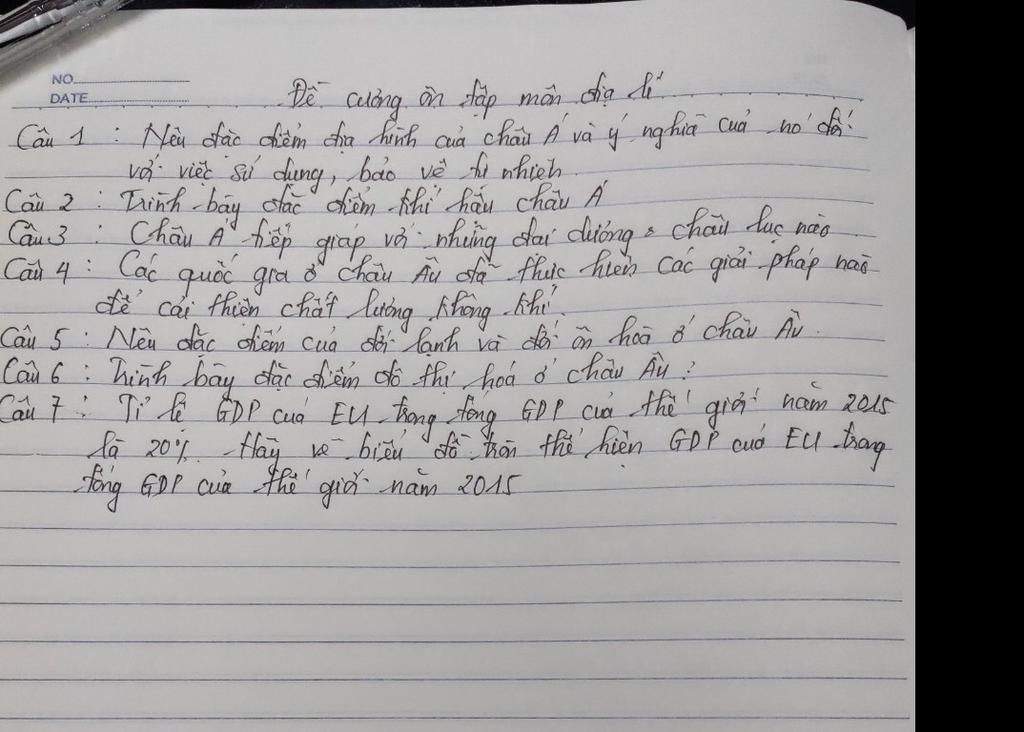 NO
DATE
Đề cương ôn tập môn địa lí
Câu 1 : Nêu đặc điểm địa hình của châu Á và ý nghĩa của nó đối
với việc sử dụng, bảo vệ tự nhiên.
Câu 2 : Trình bày đặc điểm khí hậu châu Á
Câu 3 : Châu Á tiếp giáp với những đại dương & châu lục nào
Câu 4 : Các quốc gia ở châu Âu đã thực hiện các giải pháp nào
để cải thiện chất lượng không khí.
Câu 5 : Nêu đặc điểm của đới lạnh và đới ôn hoà ở châu Âu.
Câu 6 : Trình bày đặc điểm đô thị hoá ở châu Âu ?
Câu 7 : Tỉ lệ GDP của EU trong tổng GDP của thế giới năm 2015
là 20%. Hãy vẽ biểu đồ tròn thể hiện GDP của EU trong
tổng GDP của thế giới năm 2015